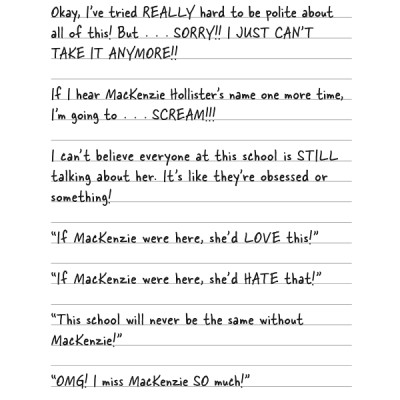 Okay, I've tried REALLY hard to be polite about
all of this! But . . . SORRY!! I JUST CAN'T
TAKE IT ANYMORE!!
If I hear MacKenzie Hollister's name one more time,
I'm going to . . . SCREAM!!!
I can't believe everyone at this school is STILL
talking about her. It's like they're obsessed or
something!
“If MacKenzie were here, she'd LOVE this!”
“If MacKenzie were here, she'd HATE that!”
“This school will never be the same without
MacKenzie!”
“OMG! I miss MacKenzie SO much!”